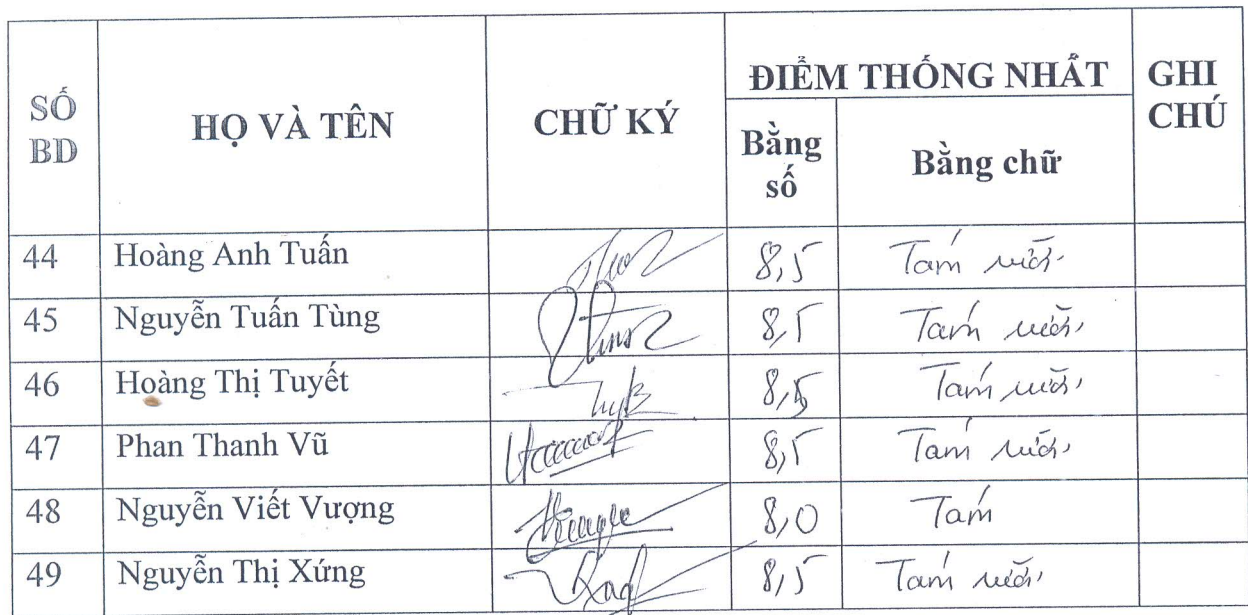 SỐ BD HỌ VÀ TÊN CHỮ KÝ ĐIỂM THỐNG NHẤT GHI CHÚ
Bằng số Bằng chữ
44 Hoàng Anh Tuấn 8,5 Tám rưỡi
45 Nguyễn Tuấn Tùng 8,5 Tám rưỡi
46 Hoàng Thị Tuyết 8,5 Tám rưỡi
47 Phan Thanh Vũ 8,5 Tám rưỡi
48 Nguyễn Viết Vượng 8,0 Tám
49 Nguyễn Thị Xứng 8,5 Tám rưỡi